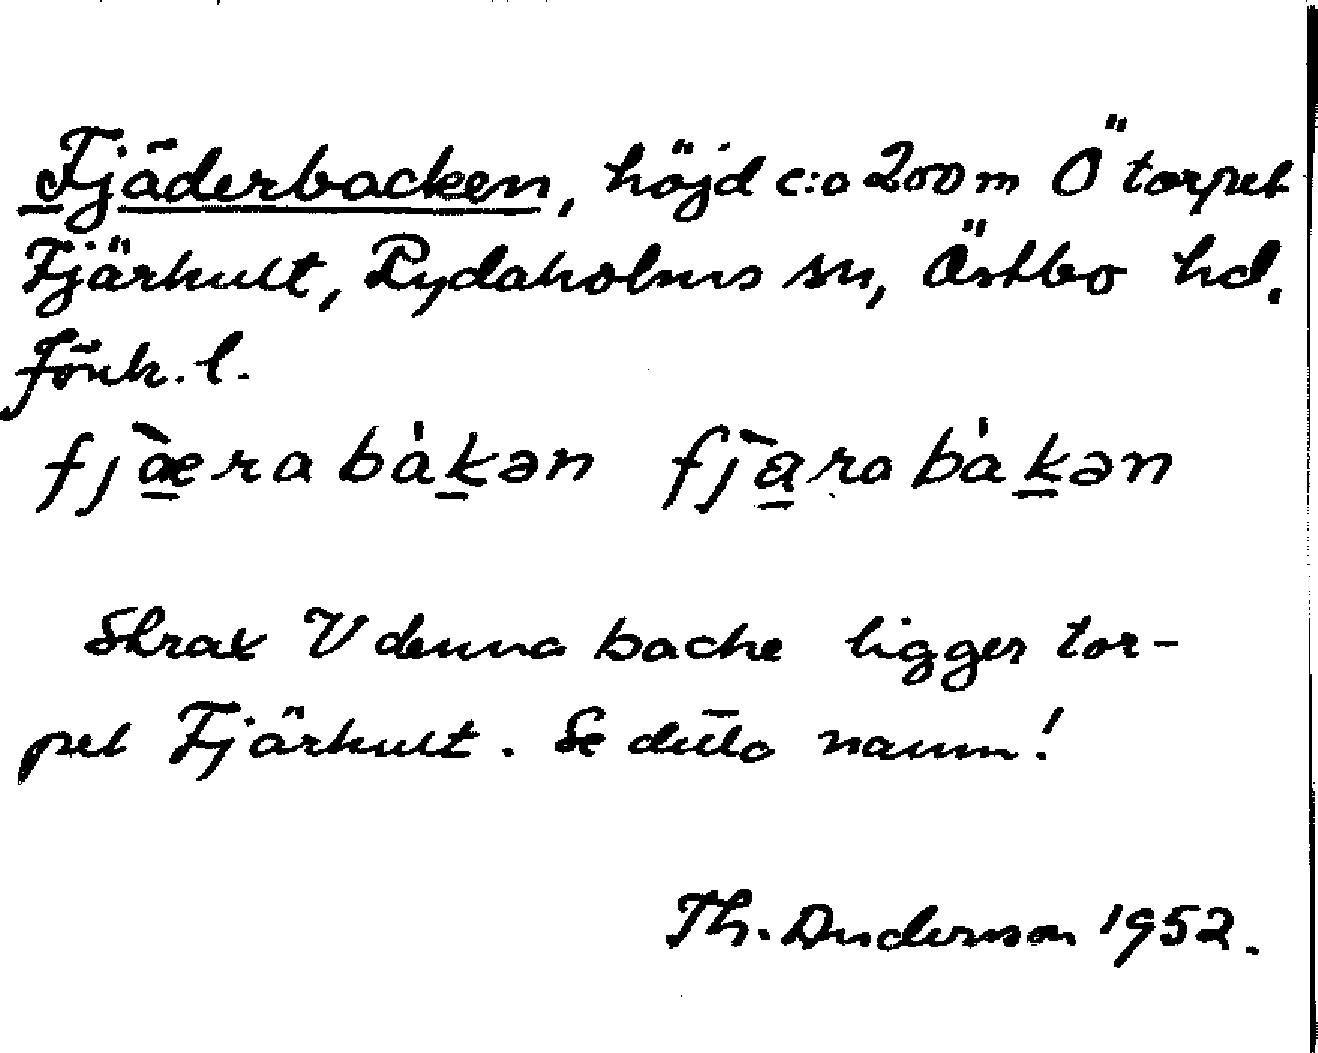 Fjäderbacken, höjd c:a 200 m Ö torpet
Fjärhult, Rydaholms sn, Östbo hd.
Jönk. l.
fjæ̀rabàkən fjàrabàkən
Strax V denna backe ligger tor-
pet Fjärhult. Se detta namn!
Th. Anderson 1952.